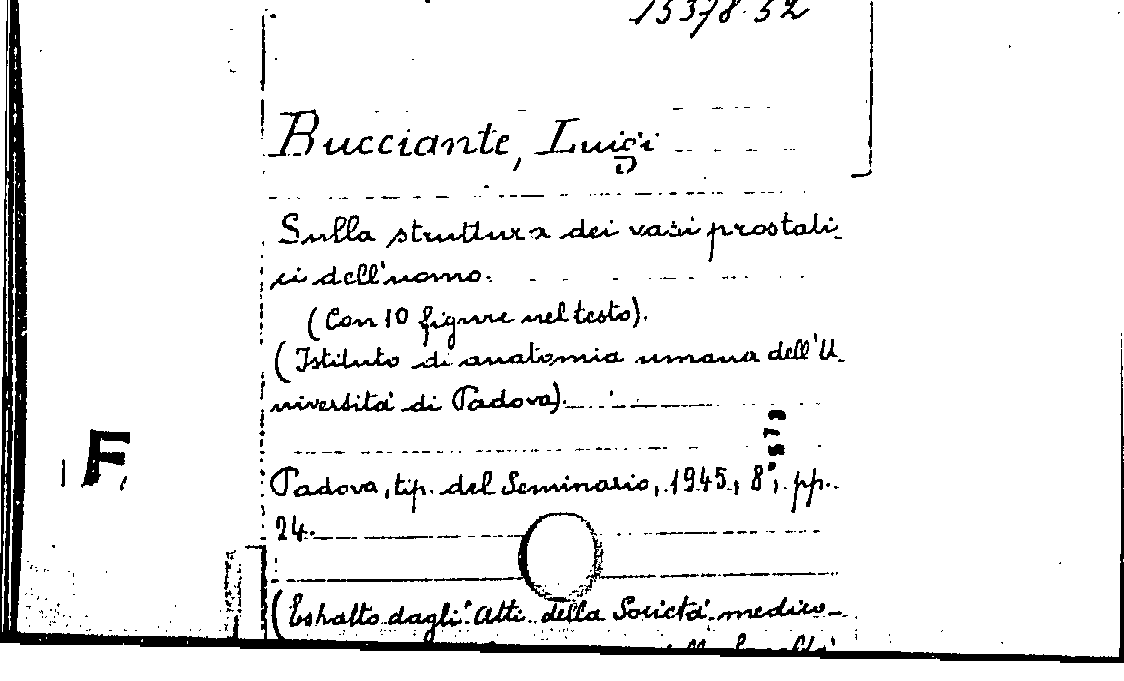 15378.52
Bucciante, Luigi
Sulla struttura dei vasi prostati-
ci dell'uomo.
(Con 10 figure nel testo).
(Istituto di anatomia umana dell'U-
niversità di Padova).
F
Padova, tip. del Seminario, 1945, 8°, pp.
24.
(Estratto dagli: Atti della Società medico-